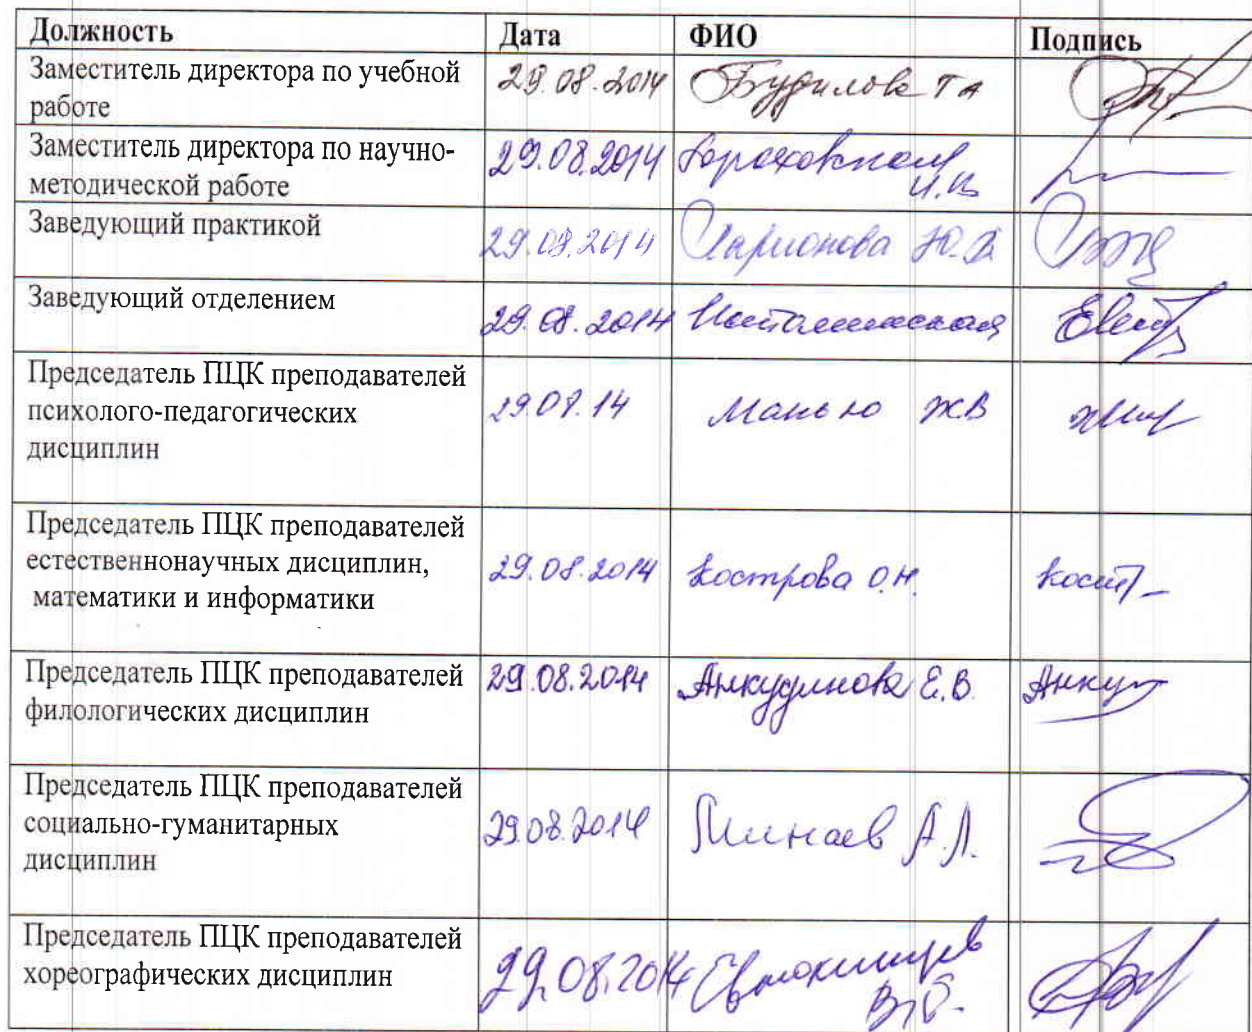 Должность Дата ФИО Подпись
Заместитель директора по учебной
работе
29.08.2014 Будилова Т А
Заместитель директора по научно-
методической работе
29.08.2014
Заведующий практикой
29.08.2014 Ларионова Ю.В
Заведующий отделением
29.08.2014
Председатель ПЦК преподавателей
психолого-педагогических
дисциплин
29.08.14 Манью ЖВ
Председатель ПЦК преподавателей
естественнонаучных дисциплин,
математики и информатики
29.08.2014 Кострова О.Н.
Председатель ПЦК преподавателей
филологических дисциплин
29.08.2014 Анкудинова Е.В.
Председатель ПЦК преподавателей
социально-гуманитарных
дисциплин
29.08.2014 Минаев А.Л.
Председатель ПЦК преподавателей
хореографических дисциплин
29.08.2014